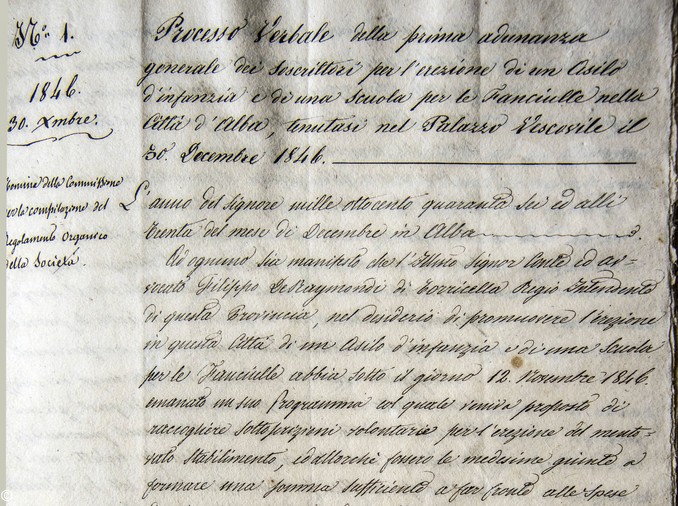 N.° 1.
1846.
30. Xmbre.
Nomina della Commissione
per la compilazione del
Regolamento Organico
della Società
Processo Verbale della prima adunanza
generale dei Soscrittori per l'erezione di un Asilo
d'infanzia e di una Scuola per le Fanciulle nella
Città d'Alba, tenutasi nel Palazzo Vescovile il
30. Decembre 1846.
L'anno del Signore mille ottocento quaranta sei ed alli
trenta del mese di Decembre in Alba
Ad ognuno sia manifesto che l'Illmo Signor Conte ed av-
vocato Filippo DeRaymondi di Torricella Regio Intendente
di questa Provincia, nel desiderio di promuovere l'erezione
in questa Città di un Asilo d'infanzia e di una Scuola
per le Fanciulle abbia sotto il giorno 12. Novembre 1846.
emanato un suo Programma col quale veniva proposto di
raccogliere sottoscrizioni volontarie per l'erezione del mento-
vato stabilimento, ed allorché fossero le medesime giunte a
formare una somma sufficiente a far fronte alle spese